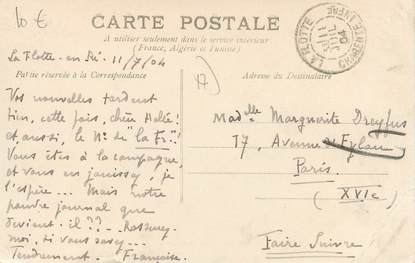 10 €
CARTE POSTALE
A utiliser seulement dans le service intérieur
(France, Algérie et Tunisie)
La Flotte en Ré. 11/7/04
Partie réservée à la Correspondance
Adresse du Destinataire
LA FLOTTE
CHARENTE INFRE
11
JUIL
04
Vos nouvelles tardent
bien, cette fois, chère
et aussi, le No de "la Fr."!
Vous êtes à la campagne,
et vous en jouissez, je
l'espère... Mais notre
pauvre journal que
devient-il?? Rassurez
moi, si vous savez...
Tendrement. Françoise.
Madelle Marguerite Dreyfus
17, Avenue d'Eylau
Paris
(XVIe)
Faire Suivre